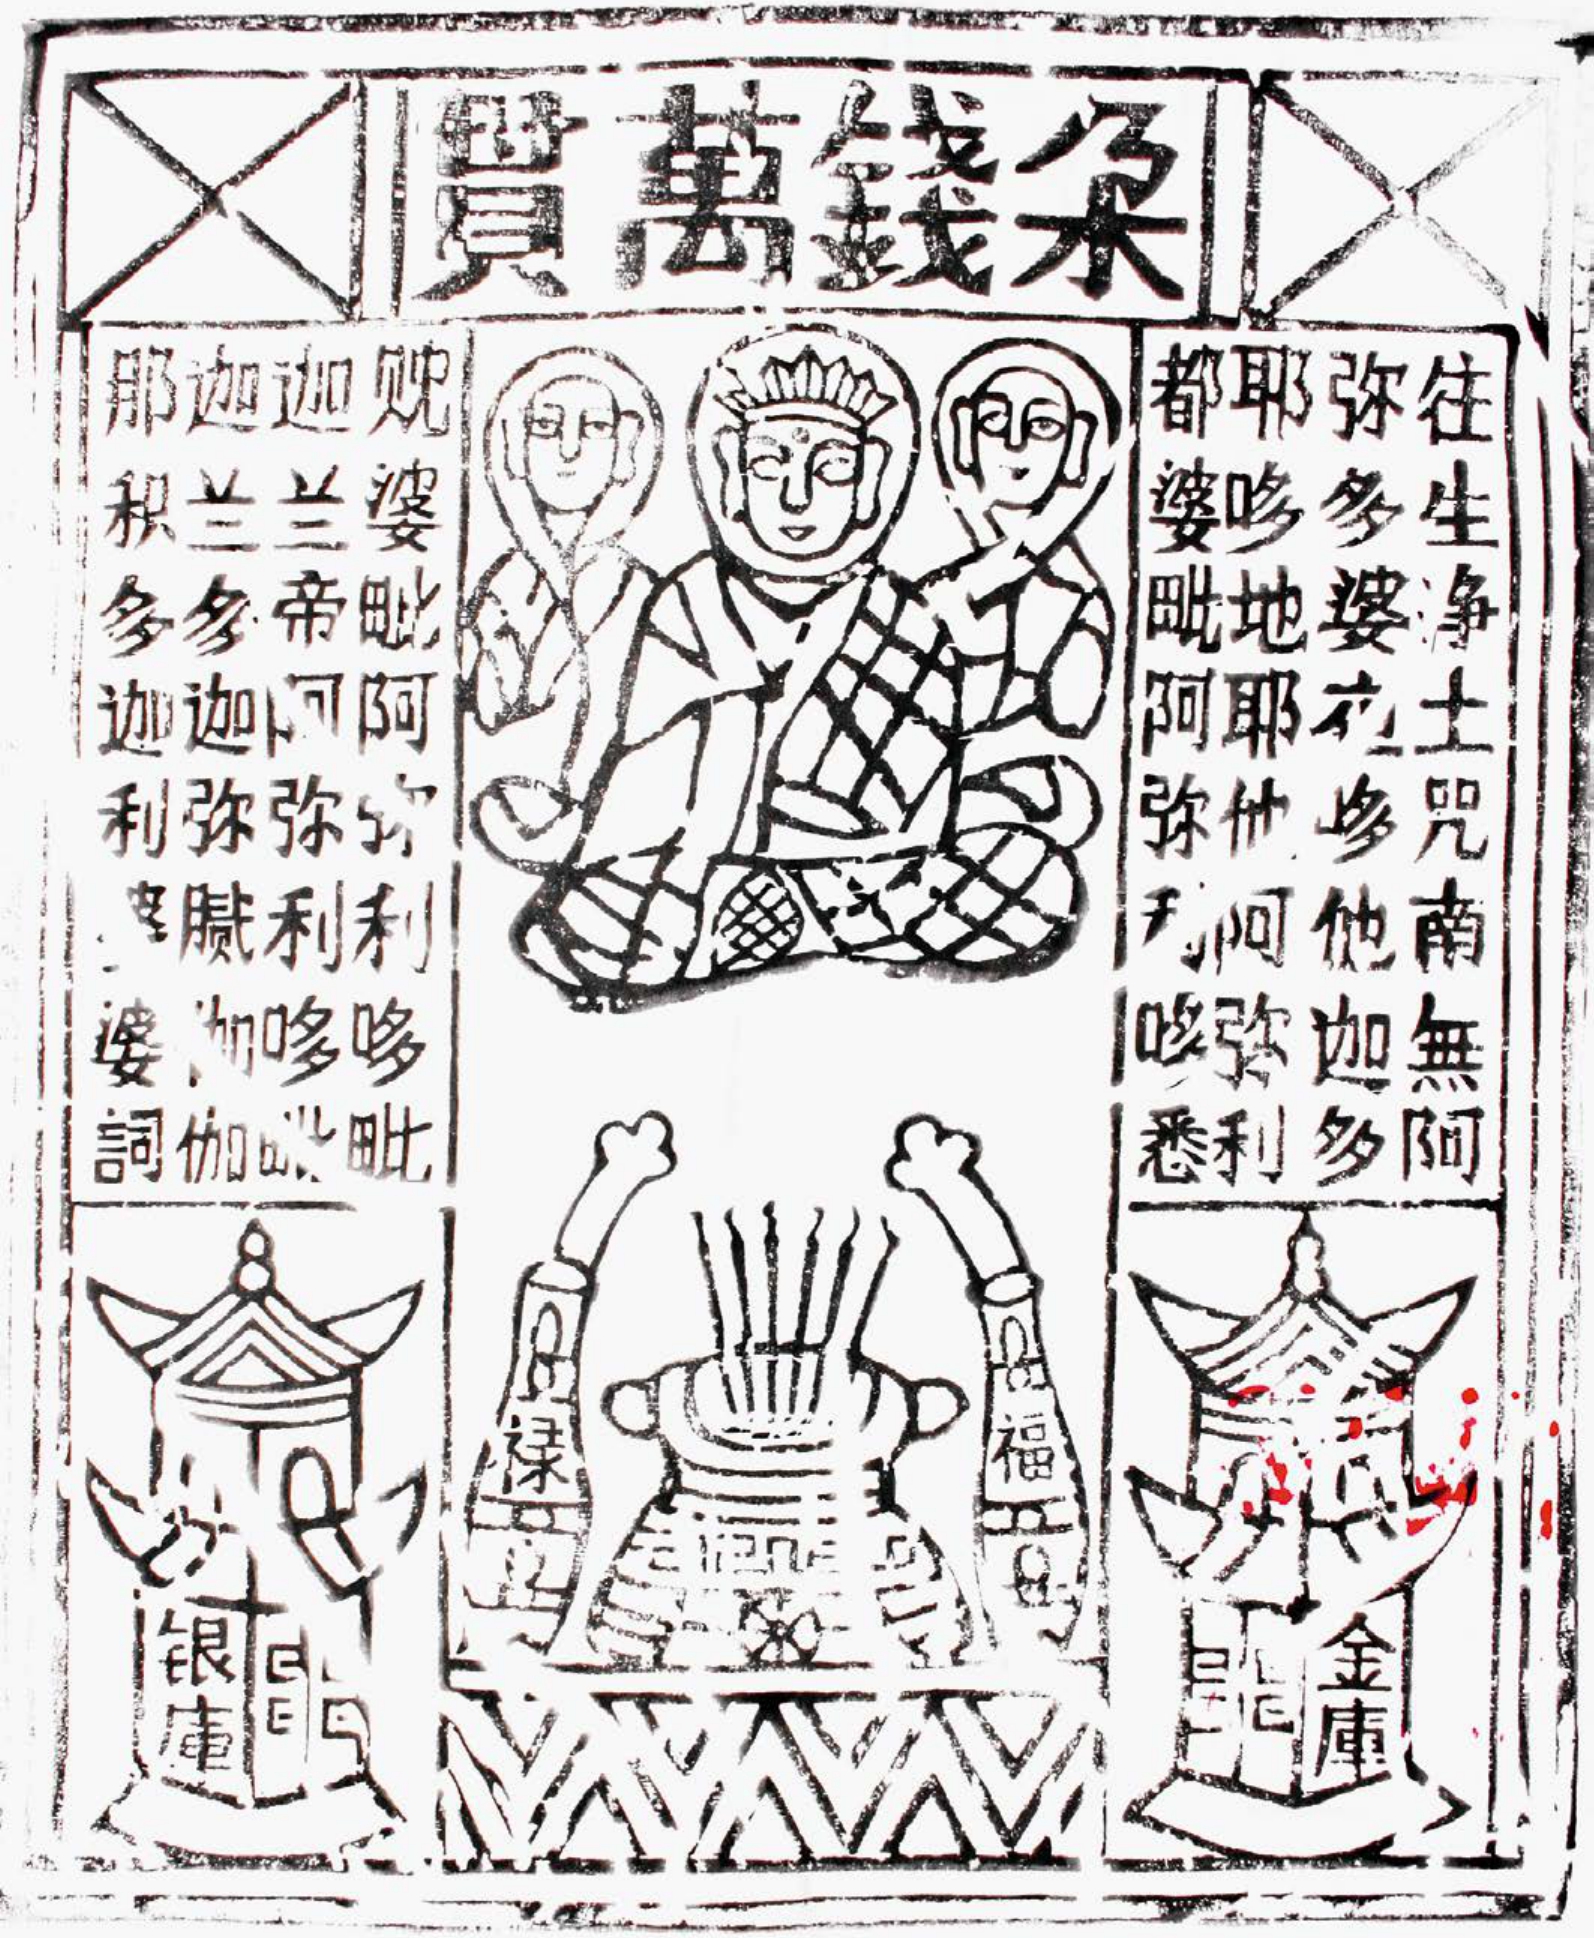 朶錢萬貫
往生净土咒南無阿
弥多婆哆他迦多
耶哆地耶他阿弥利
都婆毗阿弥利哆悉
贶婆毗阿弥利哆毗
迦兰帝阿弥利哆毗
迦兰多迦弥腻伽伽
那积多迦利婆婆詞
福
禄
金庫
银庫